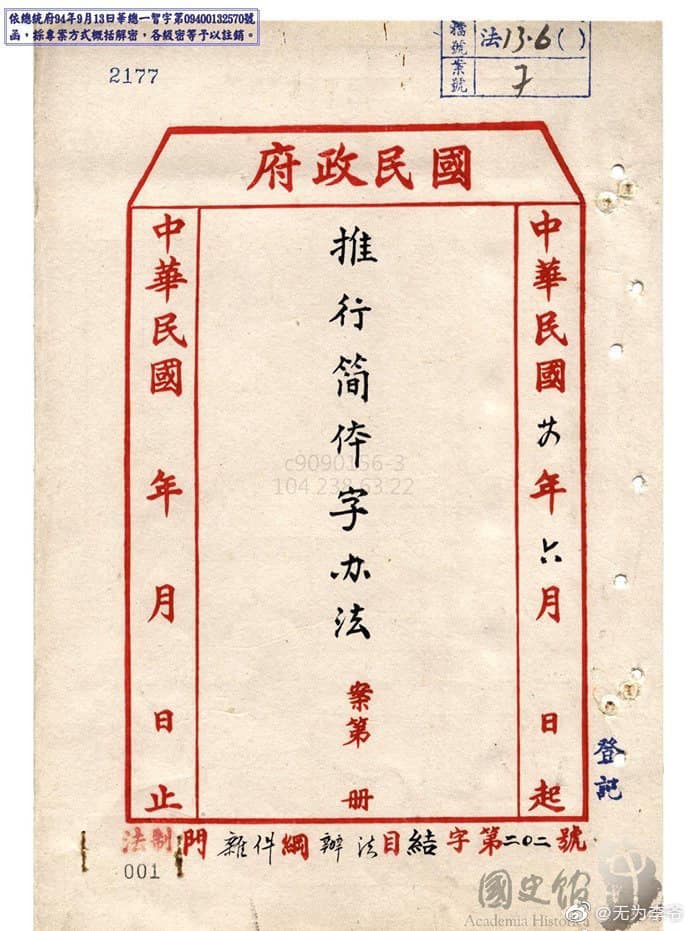 依總統府94年9月13日華總一智字第09400132570號
函，採專案方式概括解密，各級密等予以註銷。
2177
檔號 法13·6( )
案號 7
國民政府
中華民國 年六月 日起
推行简体字办法 案第 册
中華民國 年 月 日止
登記
c9090156-3
104.238.63.22
法制門雜件綱辦法目結字第二〇二號
001
國史館
Academia Historica
@无为李爷